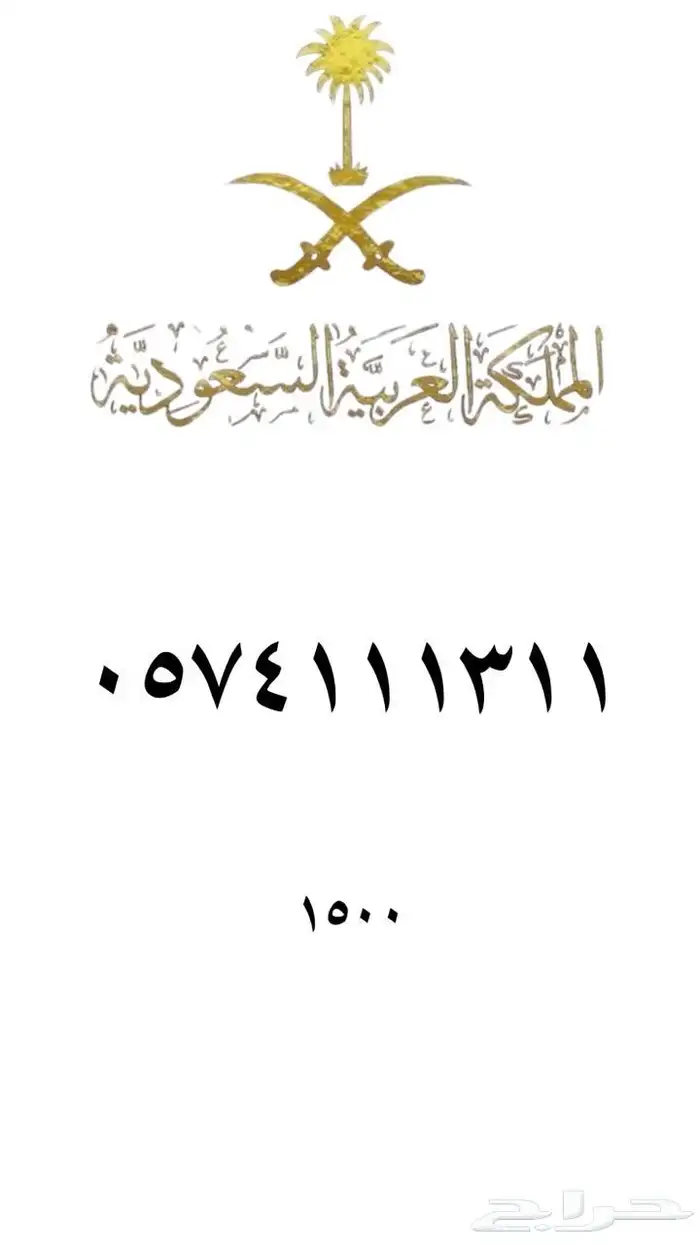 المملكة العربية السعودية
٠٥٧٤١١١٣١١
١٥٠٠
حراج